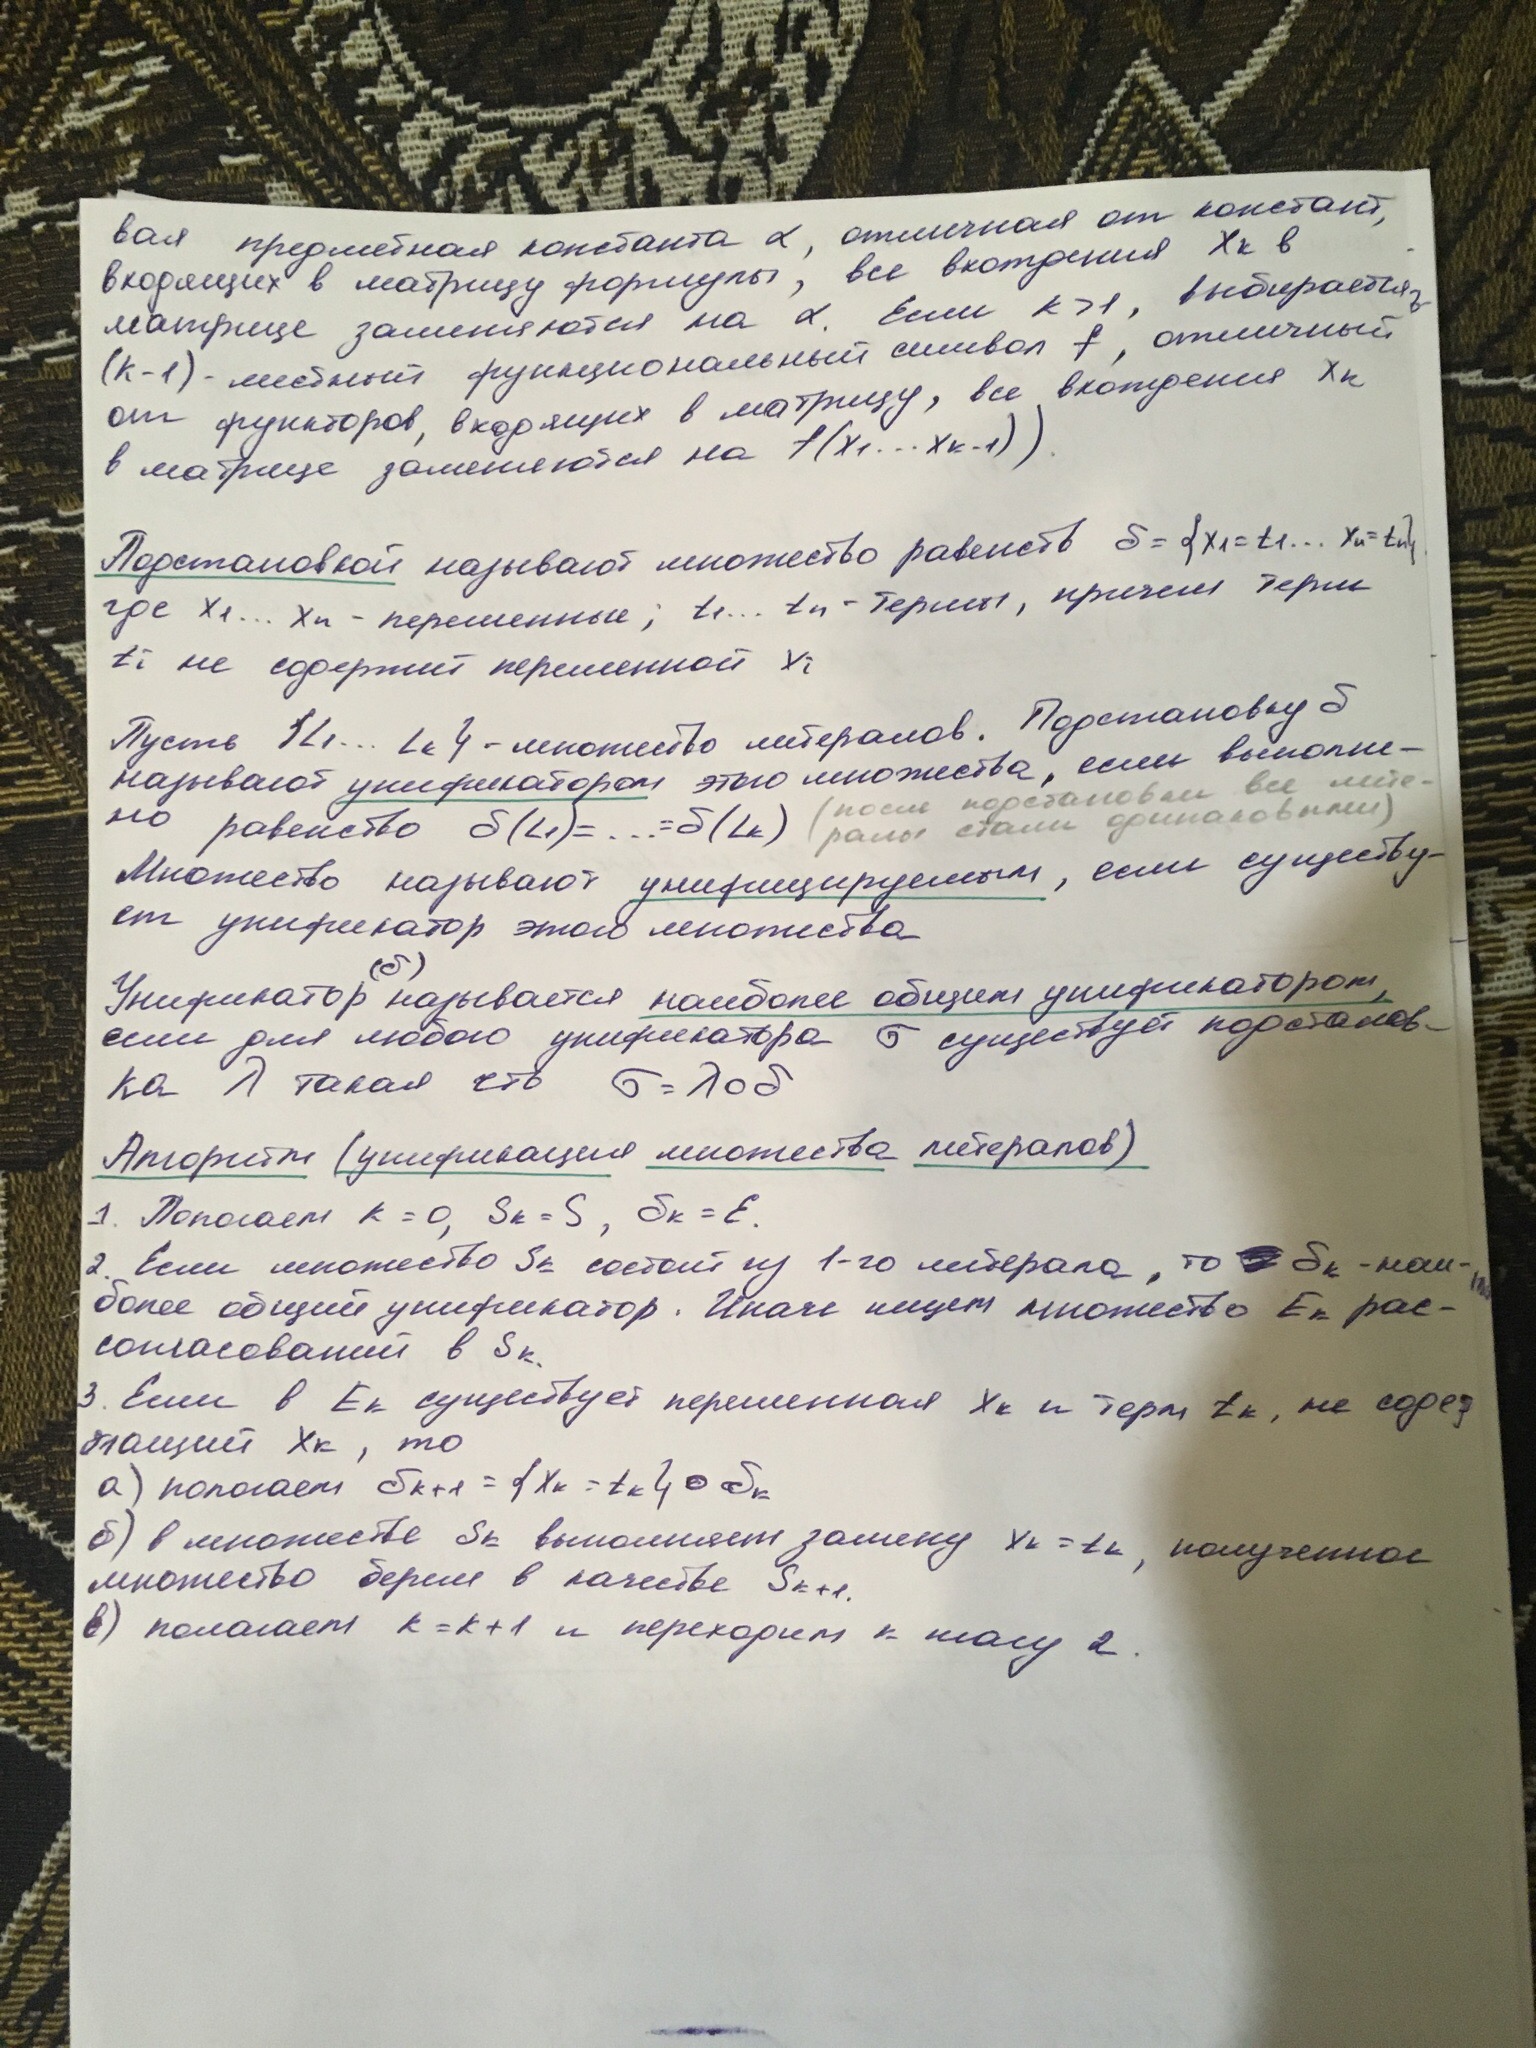 вая предметная константа α, отличная от констант,
входящих в матрицу формулы, все вхождения Xк в
матрице заменяются на α. Если к>1, выбирается
(к-1)-местный функциональный символ f, отличный
от функторов, входящих в матрицу, все вхождения Xк
в матрице заменяются на f(x1...xк-1)).
Подстановкой называют множество равенств δ={x1=t1... xn=tn},
где x1... xn - переменные; t1... tn - термы, причем терм
ti не содержит переменной xi
Пусть {L1... Lк} - множество литералов. Подстановку δ
называют унификатором этого множества, если выполне-
но равенство δ(L1)=...=δ(Lк) (после подстановки все лите-
ралы стали одинаковыми)
Множество называют унифицируемым, если существу-
ет унификатор этого множества
Унификатор (δ) называется наиболее общим унификатором,
если для любого унификатора σ существует подстанов-
ка λ такая что σ=λ∘δ
Алгоритм (унификация множества литералов)
1. Полагаем к=0, Sк=S, δк=ε.
2. Если множество Sк состоит из 1-го литерала, то δк - наи-
более общий унификатор. Иначе ищем множество Eк рас-
согласований в Sк.
3. Если в Eк существует переменная Xк и терм tк, не содер
жащий Xк, то
а) полагаем δк+1={Xк=tк}∘δк
б) в множестве Sк выполняем замену Xк=tк, полученное
множество берем в качестве Sк+1.
в) полагаем к=к+1 и переходим к шагу 2.